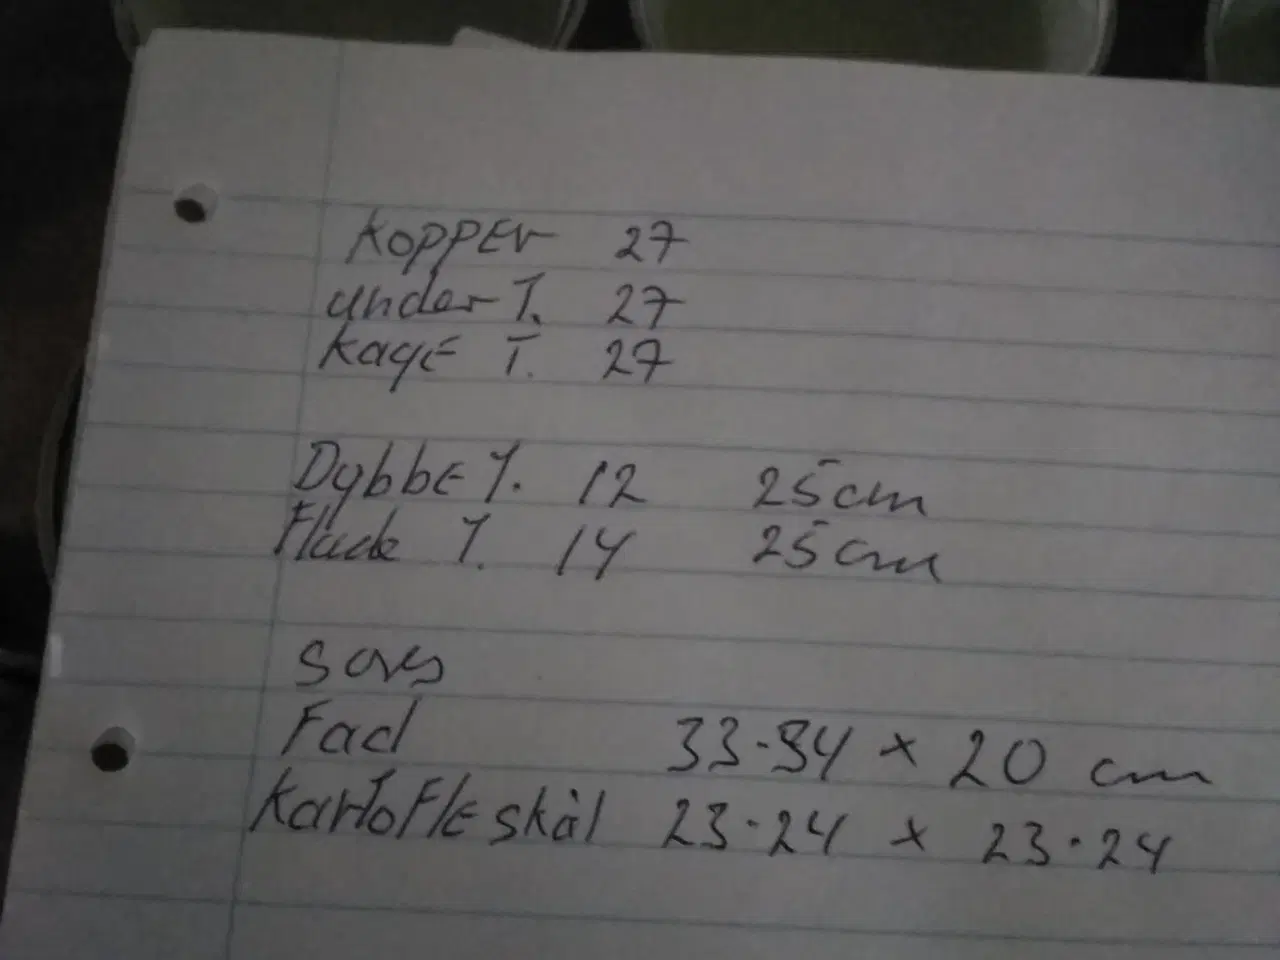 Kopper 27
under T. 27
kage T. 27
Dybbe T. 12 25cm
Flade T. 14 25cm
Sovs
Fad 33-34 x 20 cm
Kartofleskål 23-24 x 23-24